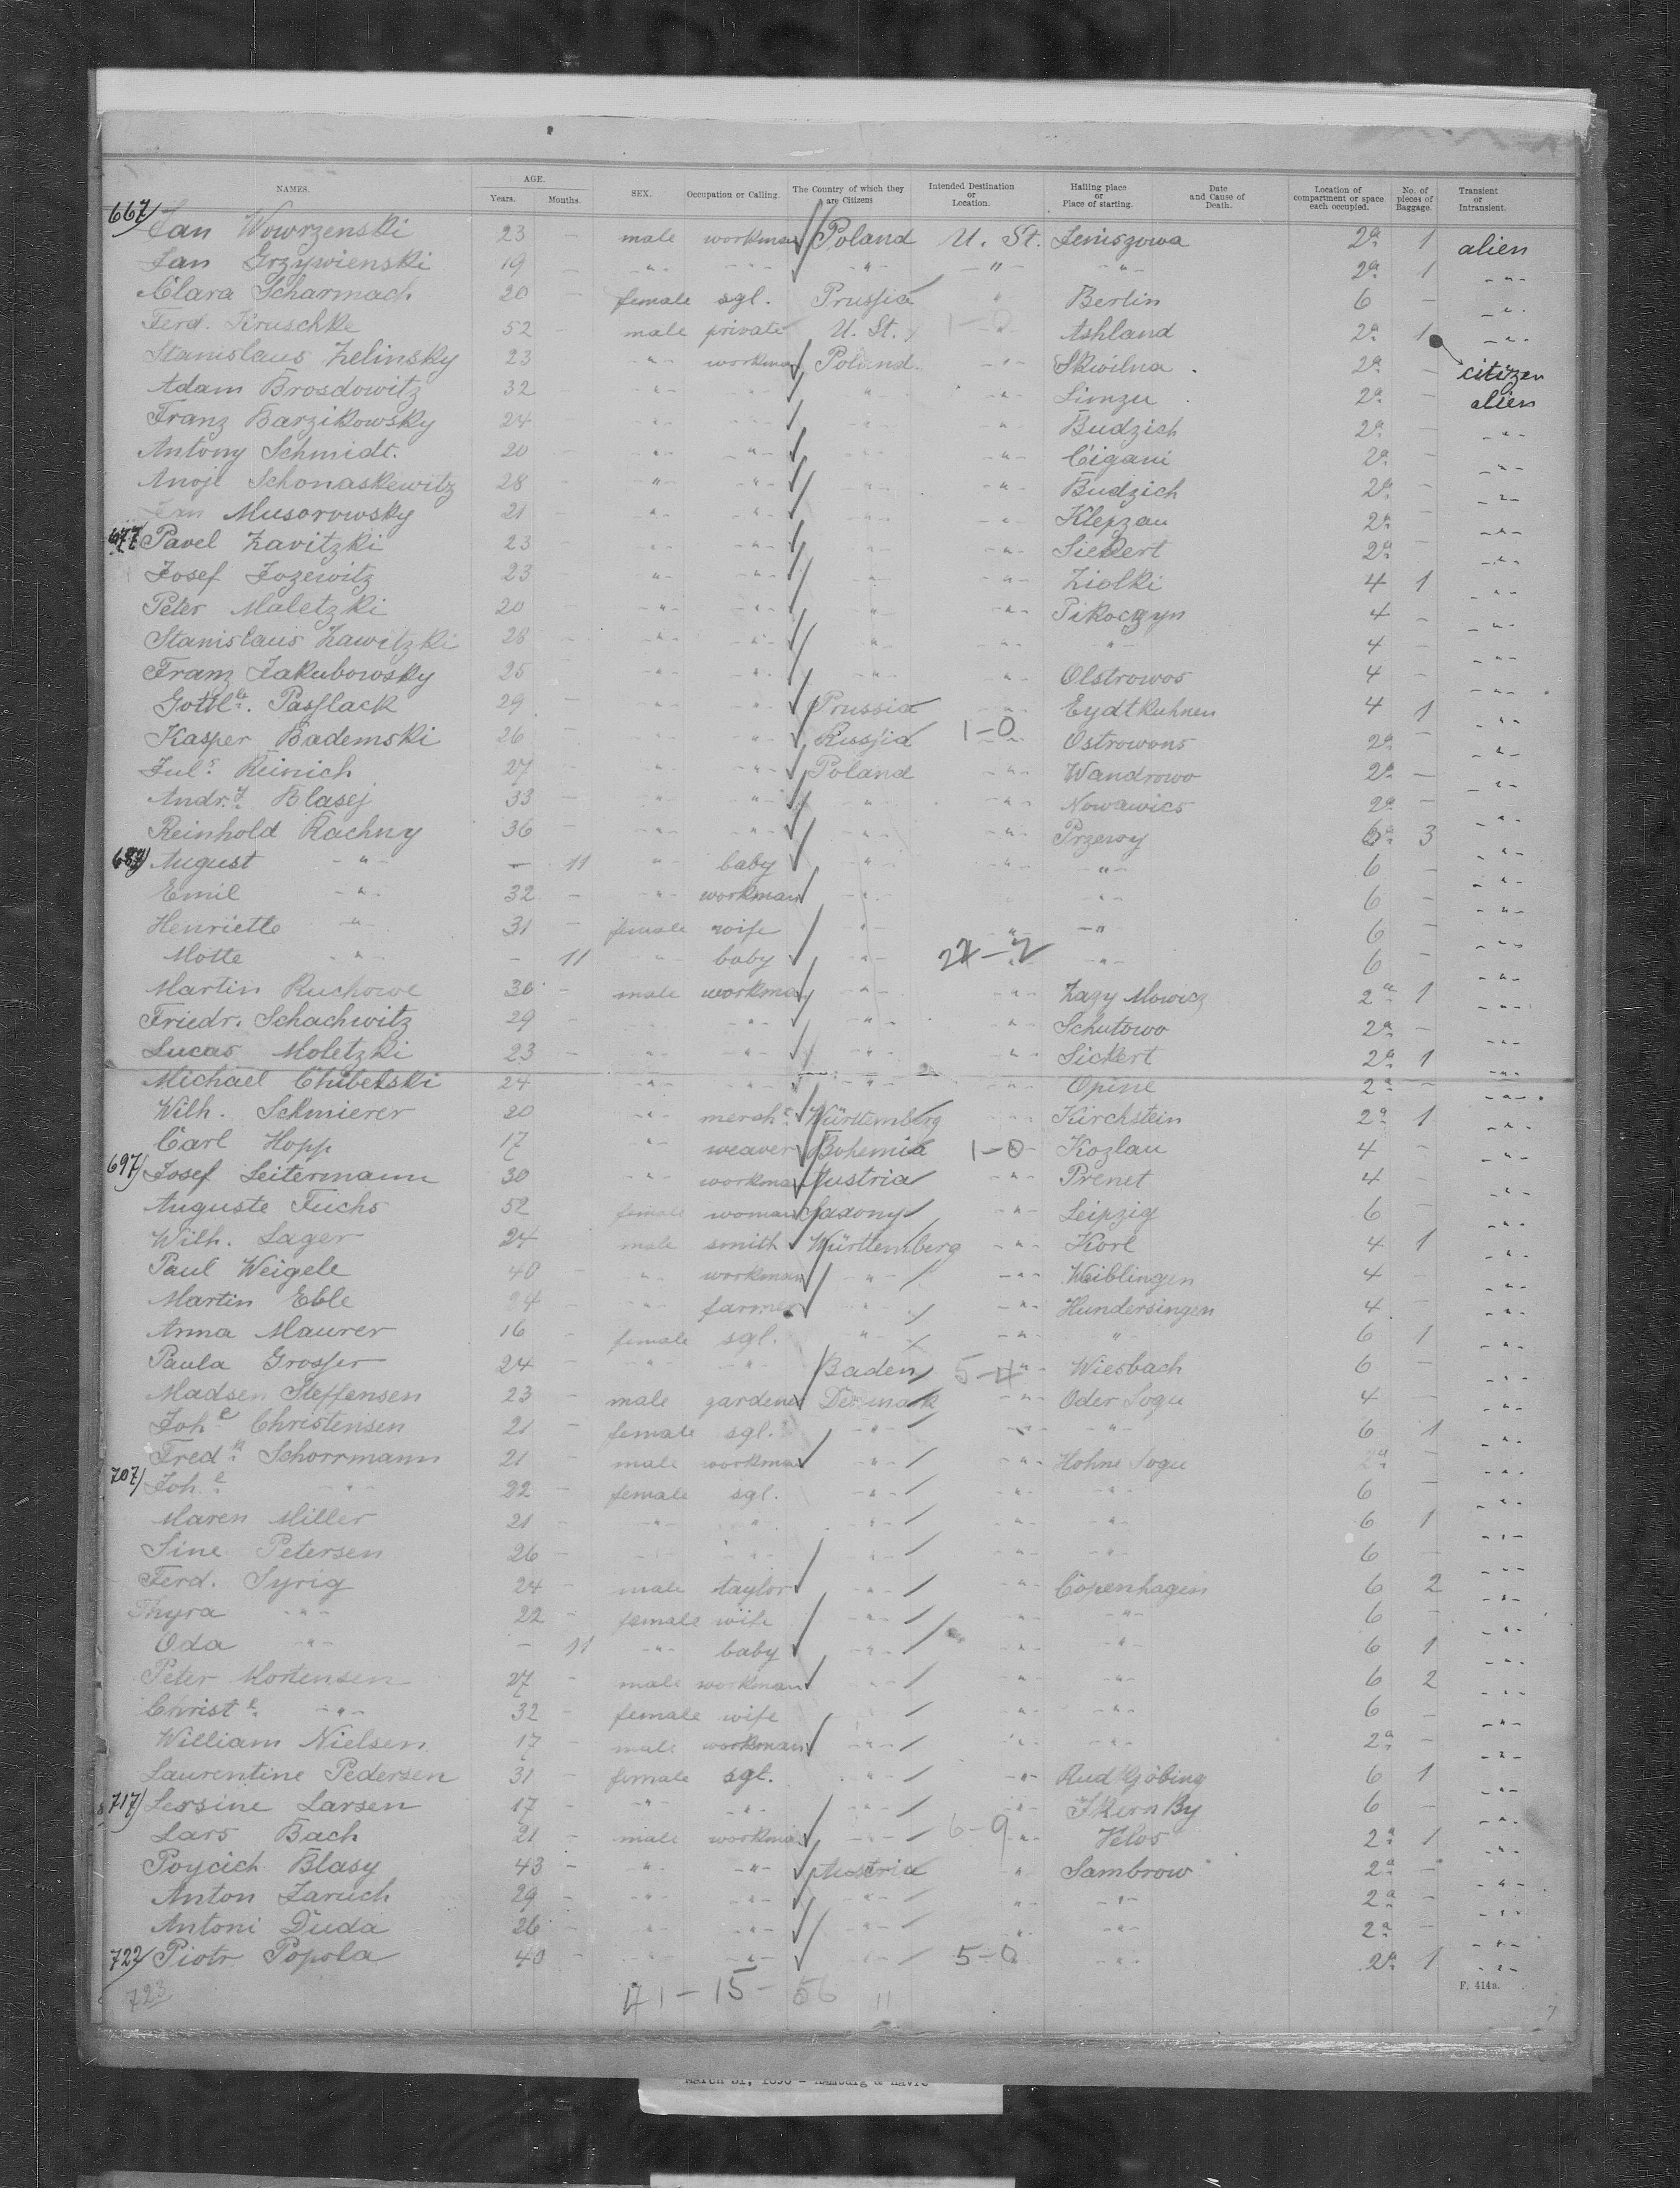 NAMES. AGE. Years. Months. SEX. Occupation or Calling. The Country of which they are Citizens Intended Destination or Location. Hailing place or Place of starting. Date and Cause of Death. Location of compartment or space each occupied. No. of pieces of Baggage. Transient or Intransient.
667/ Jan Wowrzenski 23 - male workman Poland U. St. Jeniszowa 2a 1 alien
Jan Grzywienski 19 - -"- -"- -"- -"- -"- 2a 1 -"-
Clara Scharmach 20 - female sgl. Prussia " Berlin 6 - -"-
Ferd. Kruschke 52 - male private U. St. 1-0 -"- Ashland 2a 1 -"-
Stanislaus Zelinsky 23 -"- workman Poland -"- Skwilna 2a - citizen
Adam Brosdowitz 32 -"- -"- -"- -"- Limzu 2a - alien
Franz Barzikowsky 24 -"- -"- -"- -"- Budzich 2a - -"-
Antony Schmidt. 20 - -"- -"- -"- -"- Cigani 2a - -"-
Schonaskewitz 28 - -"- -"- -"- -"- Budzich 2a - -"-
Musorowsky 21 - -"- -"- -"- -"- Klepzau 2a - -"-
677 Pavel Zavitzki 23 - -"- -"- -"- -"- Siekert 2a - -"-
Josef Jozewitz 23 - -"- -"- -"- -"- Ziolki 4 1 -"-
Peter Maletzki 20 - -"- -"- -"- -"- Pikoczyn 4 - -"-
Stanislaus Zawitzki 28 - -"- -"- -"- -"- 4 - -"-
Franz Jakubowsky 25 - -"- -"- -"- -"- Olstrowos 4 - -"-
Gottl. Passlack 29 - -"- -"- Prussia -"- Eydtkuhnen 4 1 -"-
Kasper Bademski 26 - -"- -"- Russia 1-0 Ostrowons 2a - -"-
Jul. Reinich 27 - -"- -"- Poland -"- Wandrowo 2a - -"-
Andr. Blasej 33 - -"- -"- -"- -"- Nowawics 2a - -"-
Reinhold Rachny 36 - -"- -"- -"- -"- Przewy 3 -"-
687) August -"- - 11 -"- baby -"- -"- -"- 6 - -"-
Emil -"- 32 - -"- workman -"- -"- 6 - -"-
Henriette -"- 31 - female wife -"- -"- -"- 6 - -"-
Motte -"- - 11 -"- baby -"- -"- 6 - -"-
Martin Ruchowe 36 - male workman -"- -"- Zazy Mowicz 2a 1 -"-
Friedr. Schachwitz 29 - -"- -"- -"- Schutowo 2a - -"-
Lucas Moletzki 23 - -"- -"- -"- -"- Sickert 2a 1 -"-
Michael Chibelski 24 - -"- -"- -"- -"- Opine 2a - -"-
Wilh. Schmierer 20 -"- merch. Württemberg -"- Kirchstein 2a 1 -"-
Carl Hopp 17 -"- weaver Bohemia 1-0 Kozlau 4 - -"-
697/ Josef Leitermann 30 -"- workman Austria -"- Prenet 4 - -"-
Auguste Fuchs 52 female woman Saxony -"- Leipzig 6 - -"-
Wilh. Lager 24 male smith Württemberg -"- Korl 4 1 -"-
Paul Weigele 40 - -"- workman -"- -"- Weiblingen 4 - -"-
Martin Eble - -"- farmer -"- -"- Hundersingen 4 - -"-
Anna Maurer 16 - female sgl. -"- -"- " 6 1 -"-
Paula Grosser 24 - -"- -"- Baden 5-4 Wiesbach 6 - -"-
Madsen Steffensen 23 - male gardener Denmark -"- Oder Sogu 4 - -"-
Joh.e Christensen 21 - female sgl. -"- -"- -"- 6 1 -"-
Fred. Schorrmann 21 - male workman -"- -"- Hohne Sogu 2a - -"-
707/ Joh.e -"- 22 - female sgl. -"- -"- -"- 6 - -"-
Maren Miller 21 - -"- -"- -"- -"- -"- 6 1 -"-
Sine Petersen 26 - -"- -"- -"- -"- -"- 6 - -"-
Ferd. Syrig 24 - male taylor -"- -"- Copenhagen 6 2 -"-
Thyra -"- 22 - female wife -"- -"- -"- 6 - -"-
Oda -"- - 11 -"- baby -"- -"- -"- 6 1 -"-
Peter Mortensen 27 - male workman -"- -"- -"- 6 2 -"-
Christ.e -"- 32 - female wife -"- -"- 6 - -"-
William Nielsen 17 - male workman -"- -"- -"- 2a - -"-
Laurentine Pedersen 31 - female sgl. -"- -"- Rudkjöbing 6 1 -"-
717) Lersine Larsen 17 - -"- -"- -"- -"- Skern By 6 - -"-
Lars Bach 21 - male workman -"- 6-9 -"- Velos 2a 1 -"-
Poycich Blasy 43 - -"- -"- Austria " Sambrow 2a - -"-
Anton Jaruch 29 - -"- -"- -"- " -"- 2a - -"-
Antoni Duda 26 - -"- -"- -"- -"- 2a - -"-
722/ Piotr Popola 40 - -"- -"- -"- 5-0 -"- 2a 1 -"-
723 71-15-56 11
F. 414a.
7
March 31, 1890 - Hamburg & Havre